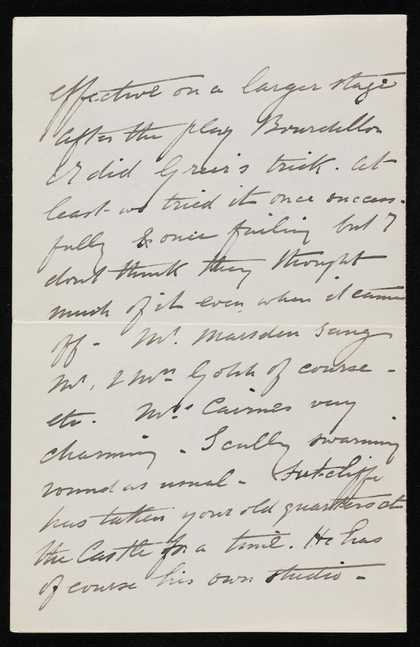 effective on a larger stage
After the play Bourdillon
& I did Greer's trick. At
least we tried it once success-
fully & once failing but I
dont think they thought
much of it even when it came
off - Mr. Marsden sang
Mr. & Mrs of course -
etc. Mrs Cairnes very
charming - Scully swarming
round as usual - Sutcliffe
has taken your old quarters at
the Castle for a time. He has
of course his own studio -